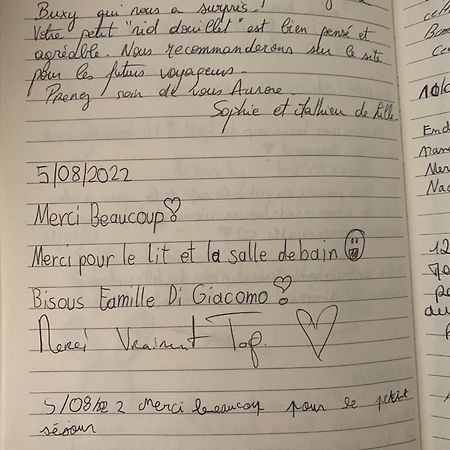 Buxy qui nous a surpris !
Votre petit "nid douillet" est bien pensé et
agréable. Nous recommanderons sur le site
pour les futurs voyageurs.
Prenez soin de vous Aurore.
Sophie et Mathieu de Lille
5/08/2022
Merci Beaucoup
Merci pour le lit et la salle de bain
Bisous Famille Di Giacomo
Merci Vraiment Top.
5/08/22 Merci beaucoup pour le petit
séjour
10/0
12